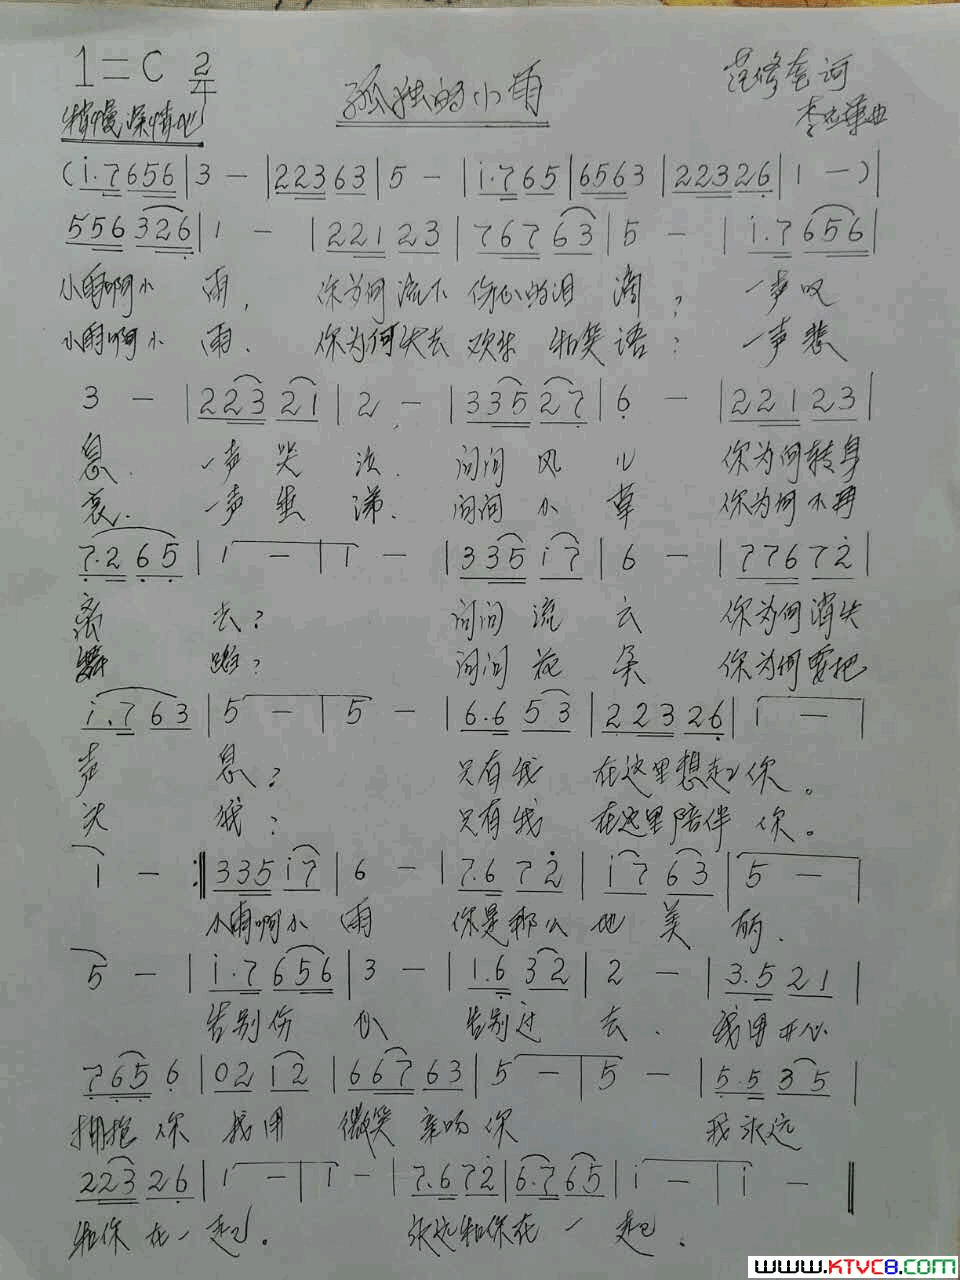 1=C 2/4
孤独的小雨
范修奎词
稍慢 深情地
李 华曲
(i.7656|3 -|22363|5 -|i.765|6563|22326|1 -)|
556326|1 -|22123|76763|5 -|i.7656|
小雨啊小 雨, 你为何流下 伤心的泪 滴? 一声叹
小雨啊小 雨. 你为何失去 欢乐 和笑语? 一声悲
3 -|22321|2 -|33527|6 -|22123|
息. 一声哭 泣. 问问 风 儿 你为何转身
哀. 一声 涕. 问问 小 草 你为何不再
7.265|1 -|1 -|335i7|6 -|77672|
离 去? 问问 流 云 你为何消失
舞 蹈? 问问 花 朵 你为何要把
i.763|5 -|5 -|6.653|22326|1 -|
声 息? 只有我 在这里想起你。
头 低? 只有我 在这里陪伴 你。
1 -:‖335i7|6 -|7.672|i763|5 -
小雨啊小 雨 你是那么 地 美 丽.
5 -|i.7656|3 -|1.632|2 -|3.521|
告别伤 心 告别过 去. 我用开心
7656|0212|66763|5 -|5 -|5.535|
拥抱 你 我用 微笑 亲吻 你 我永远
22326|1 -|1 -|7.672|6.765|i -|i -‖
和你 在一 起。 永远和你在 一 起.
www.KTVC8.com